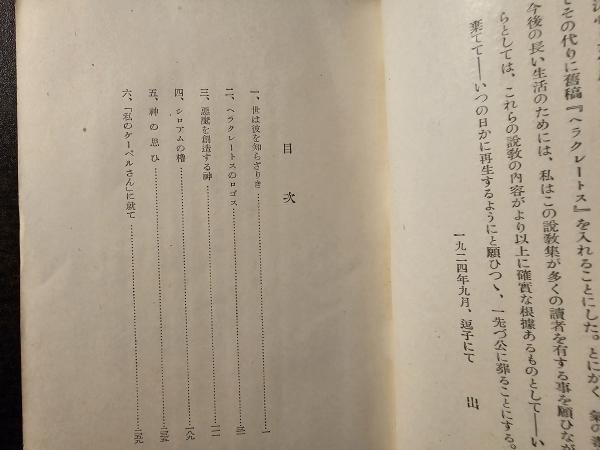 てその代りに舊稿『ヘラクレートス』を入れることにした。とにかく
今後の長い生活のためには、私はこの說敎集が多くの讀者を有する事を願ひなが
らとしては、これらの說敎の內容がより以上に確實な根據あるものとして――い
棄てて――いつの日かに再生するようにと願ひつゝ、一先づ公に葬ることにする。
一九二四年九月、逗子にて　出
目次
一、世は彼を知らざりき………一
二、ヘラクレートスのロゴス………三一
三、惡魔を創造する神………一一一
四、シロアムの櫓………一八九
五、神の思ひ………二三五
六、「私のケーベルさん」に就て………二五九